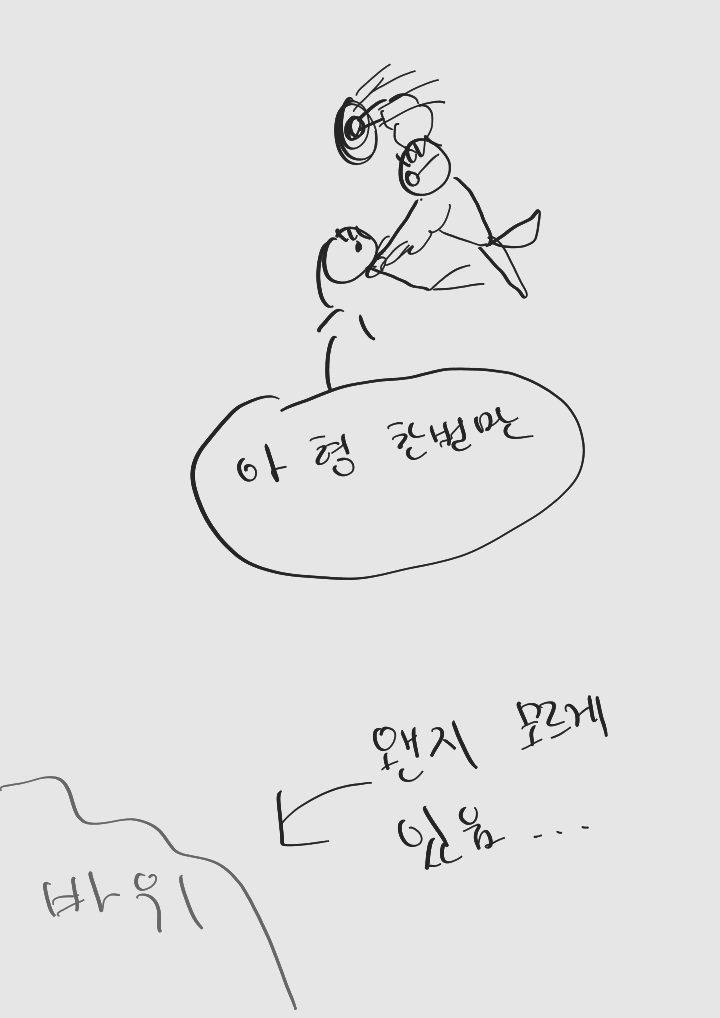 아 형 한번만
왠지 모르게
있음...
바위